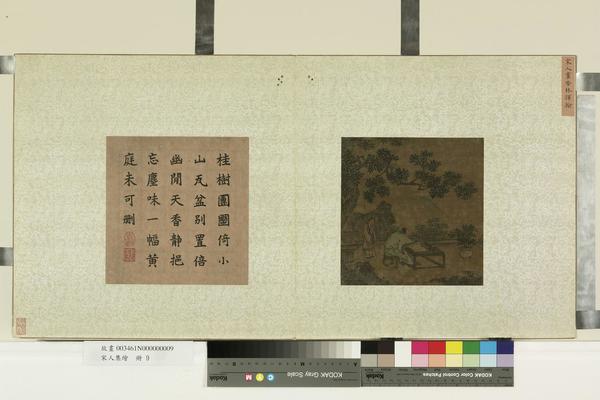 宋人畫香林揮翰
桂樹團團倚小
山瓦盆別置倍
幽閒天香靜挹
忘塵味一幅黃
庭未可刪
故畫 003461N000000009
宋人集繪 冊 9
KODAK Gray Scale
C Y M
Kodak
KODAK Color Control Patches